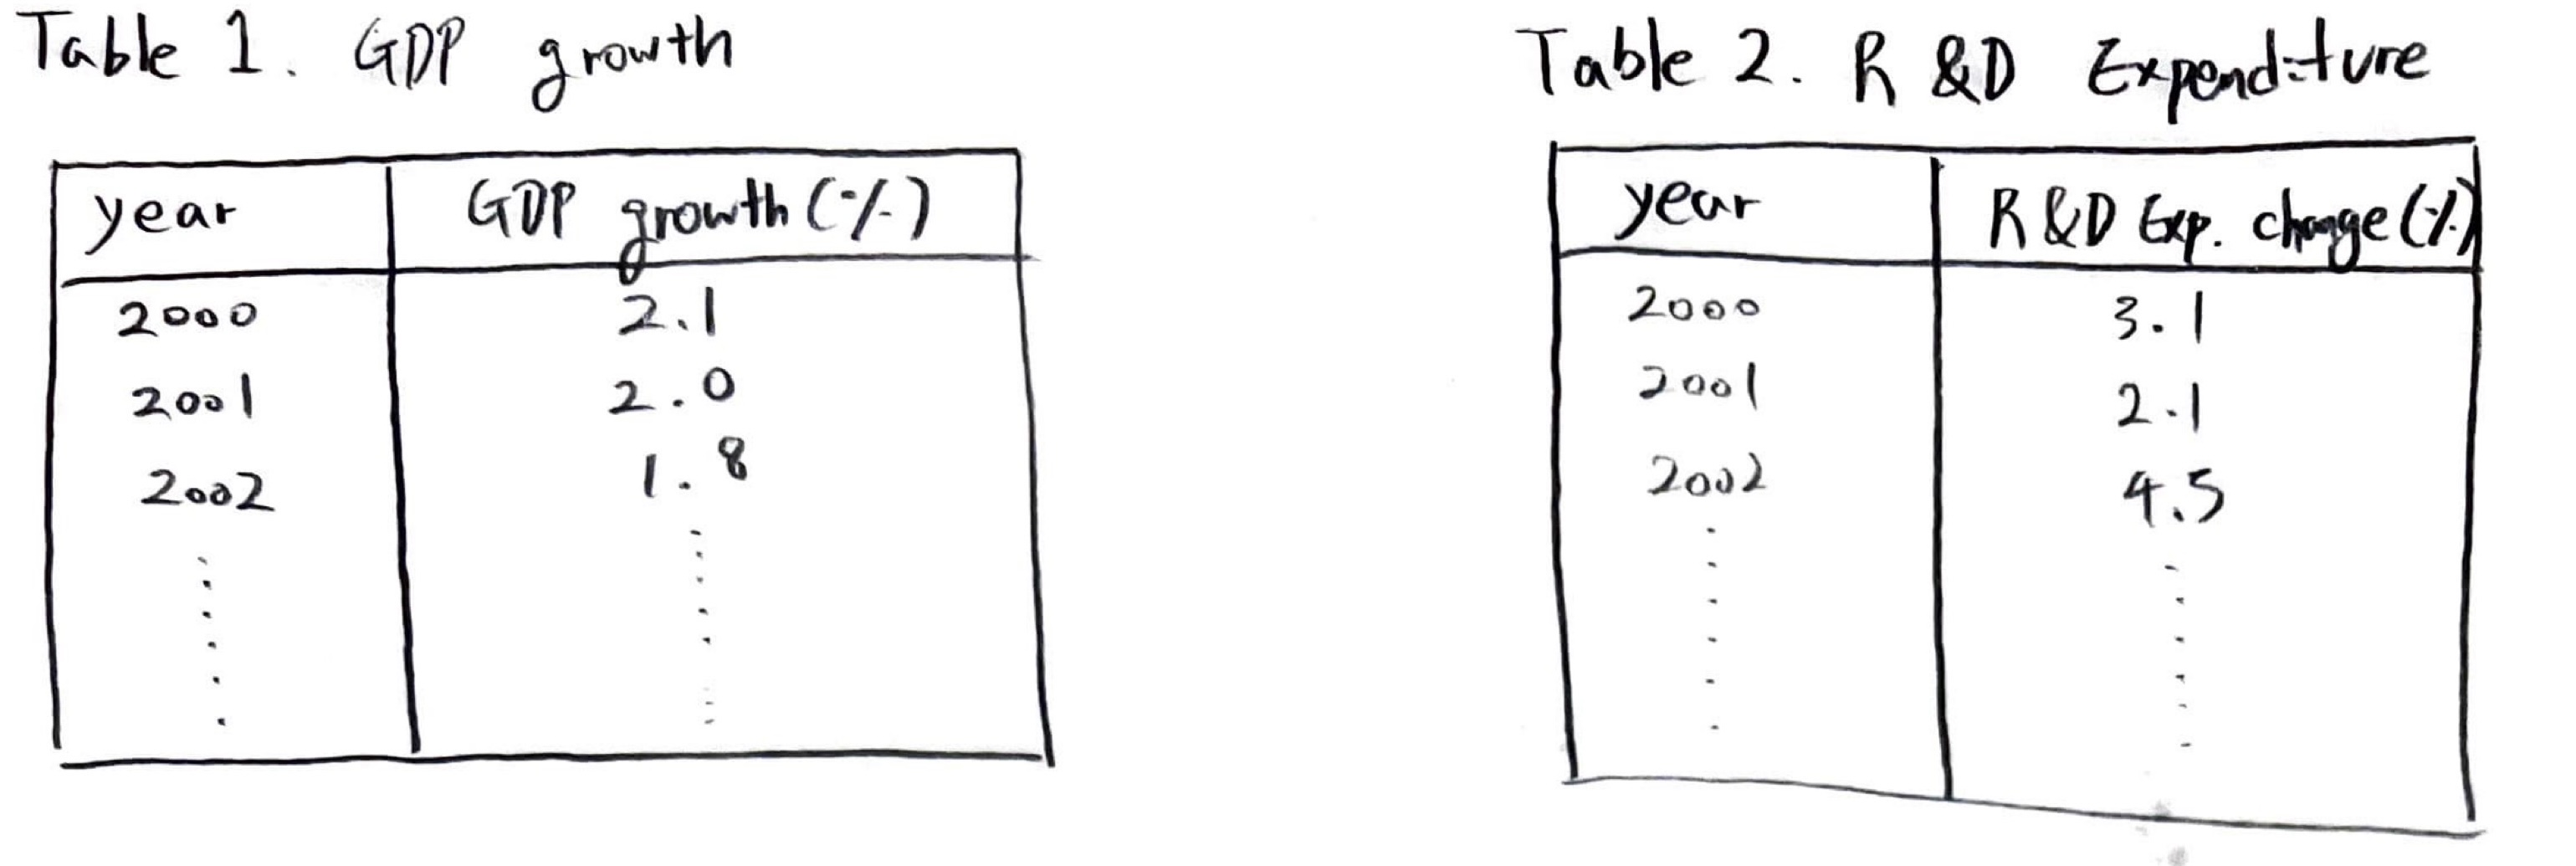 Table 1. GDP growth
year GDP growth (%)
2000 2.1
2001 2.0
2002 1.8
Table 2. R&D Expenditure
year R&D Exp. change (%)
2000 3.1
2001 2.1
2002 4.5